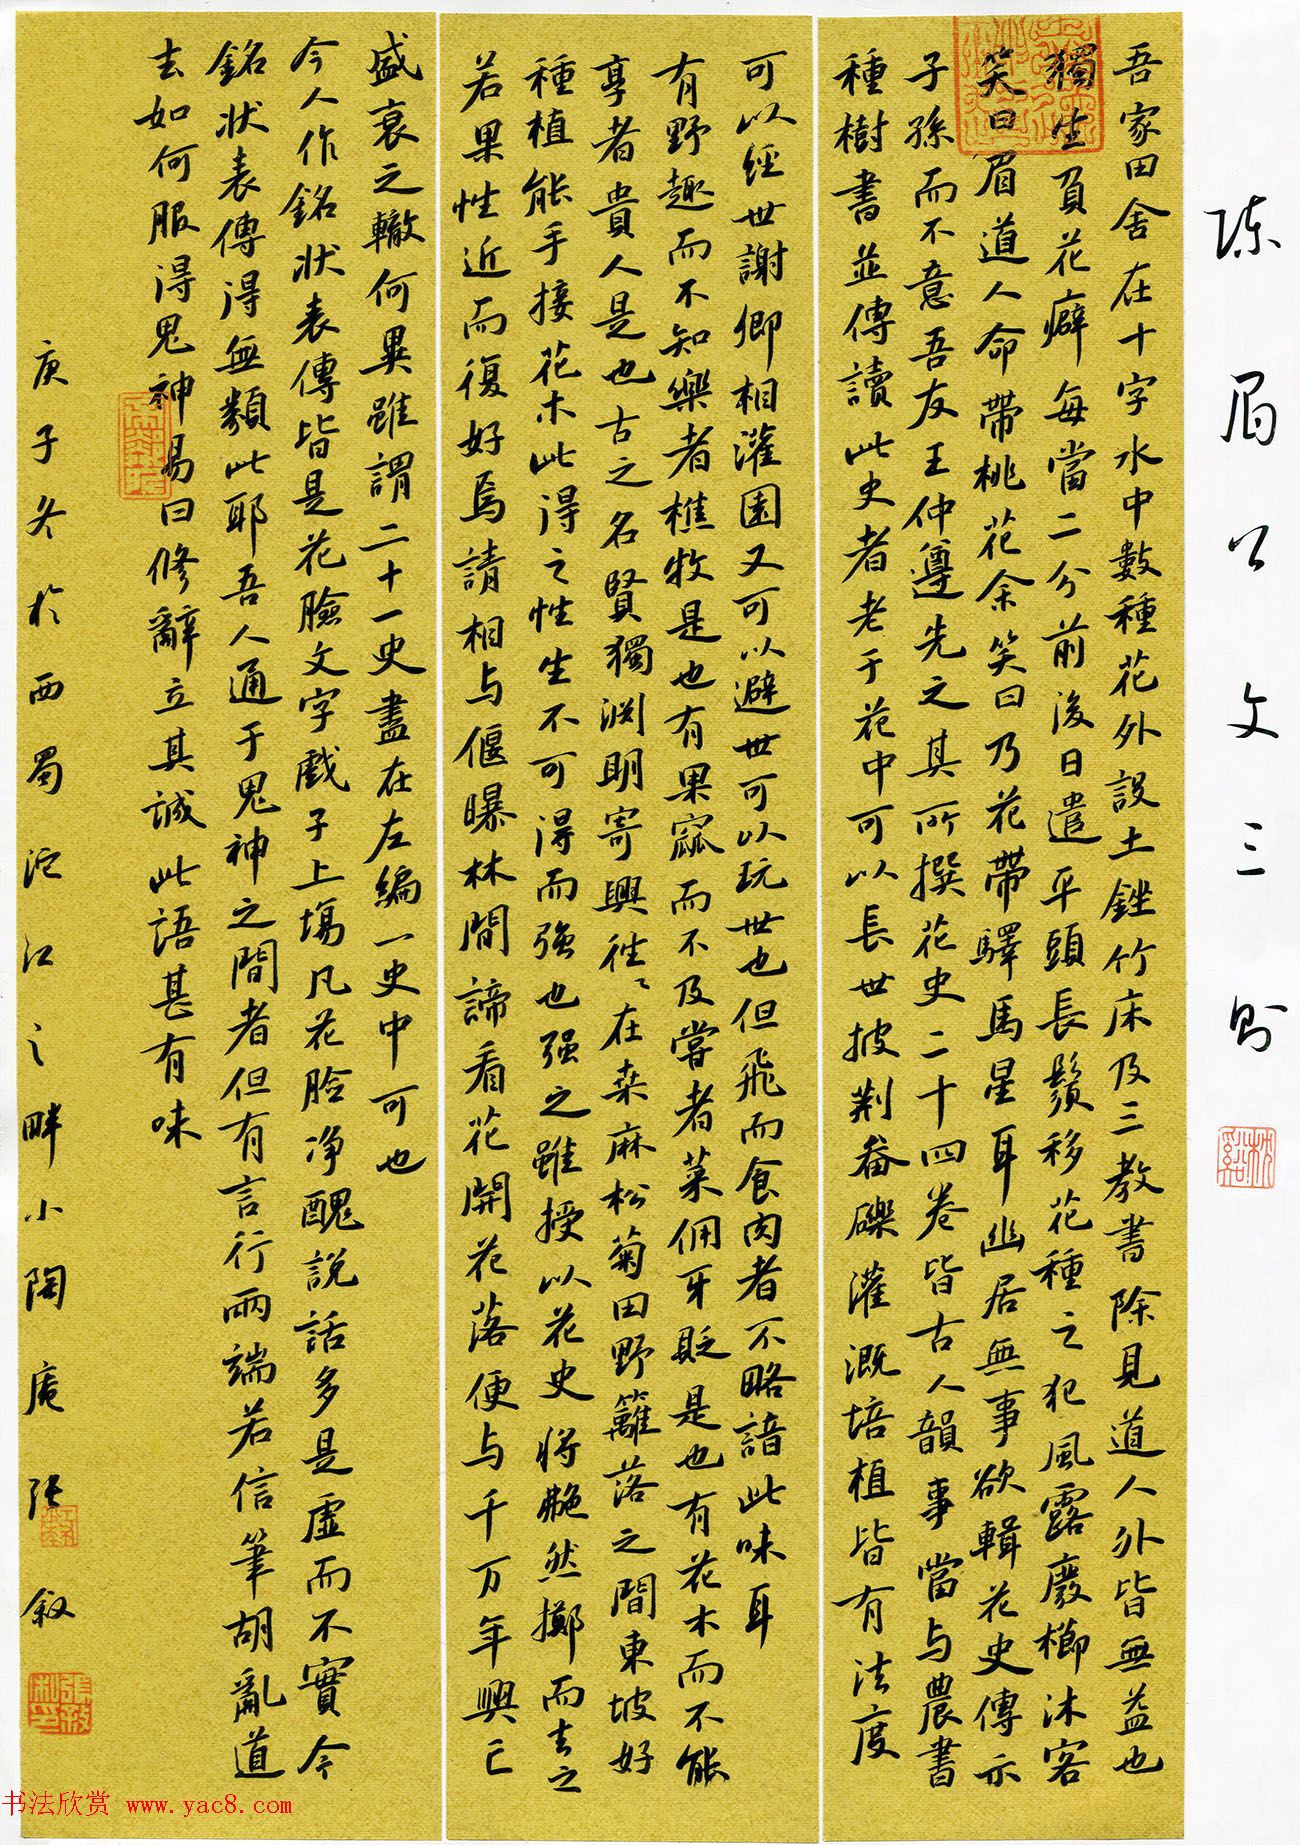 陈眉公文三则
吾家田舍在十字水中數種花外設土銼竹床及三教書除見道人外皆無益也
獨生負花癖每當二分前後日遣平頭長鬚移花種之犯風露廢櫛沐客
笑曰眉道人命帶桃花余笑曰乃花帶驛馬星耳幽居無事欲輯花史傳示
子孫而不意吾友王仲遵先之其所撰花史二十四卷皆古人韻事當与農書
種樹書並傳讀此史者老于花中可以長世披荆畚礫灌溉培植皆有法度
可以經世謝卿相灌園又可以避世可以玩世也但飛而食肉者不略諳此味耳
有野趣而不知樂者樵牧是也有果窳而不及嘗者菜佣牙貶是也有花木而不能
享者貴人是也古之名賢獨渊明寄興往〻在桒麻松菊田野籬落之間東坡好
種植能手接花木此得之性生不可得而強也强之雖授以花史將艴然擲而去之
若果性近而復好焉請相与偃曝林間諦看花開花落便与千万年興亡
盛衰之轍何異雖謂二十一史盡在左編一史中可也
今人作銘状表傳皆是花臉文字戲子上場凡花臉净醜說話多是虛而不實今
銘状表傳得無類此耶吾人通于鬼神之間者但有言行兩端若信筆胡亂道
去如何服得鬼神易曰修辭立其誠此語甚有味
庚子冬於西蜀沱江之畔小陶庵张叙
书法欣赏 www.yac8.com